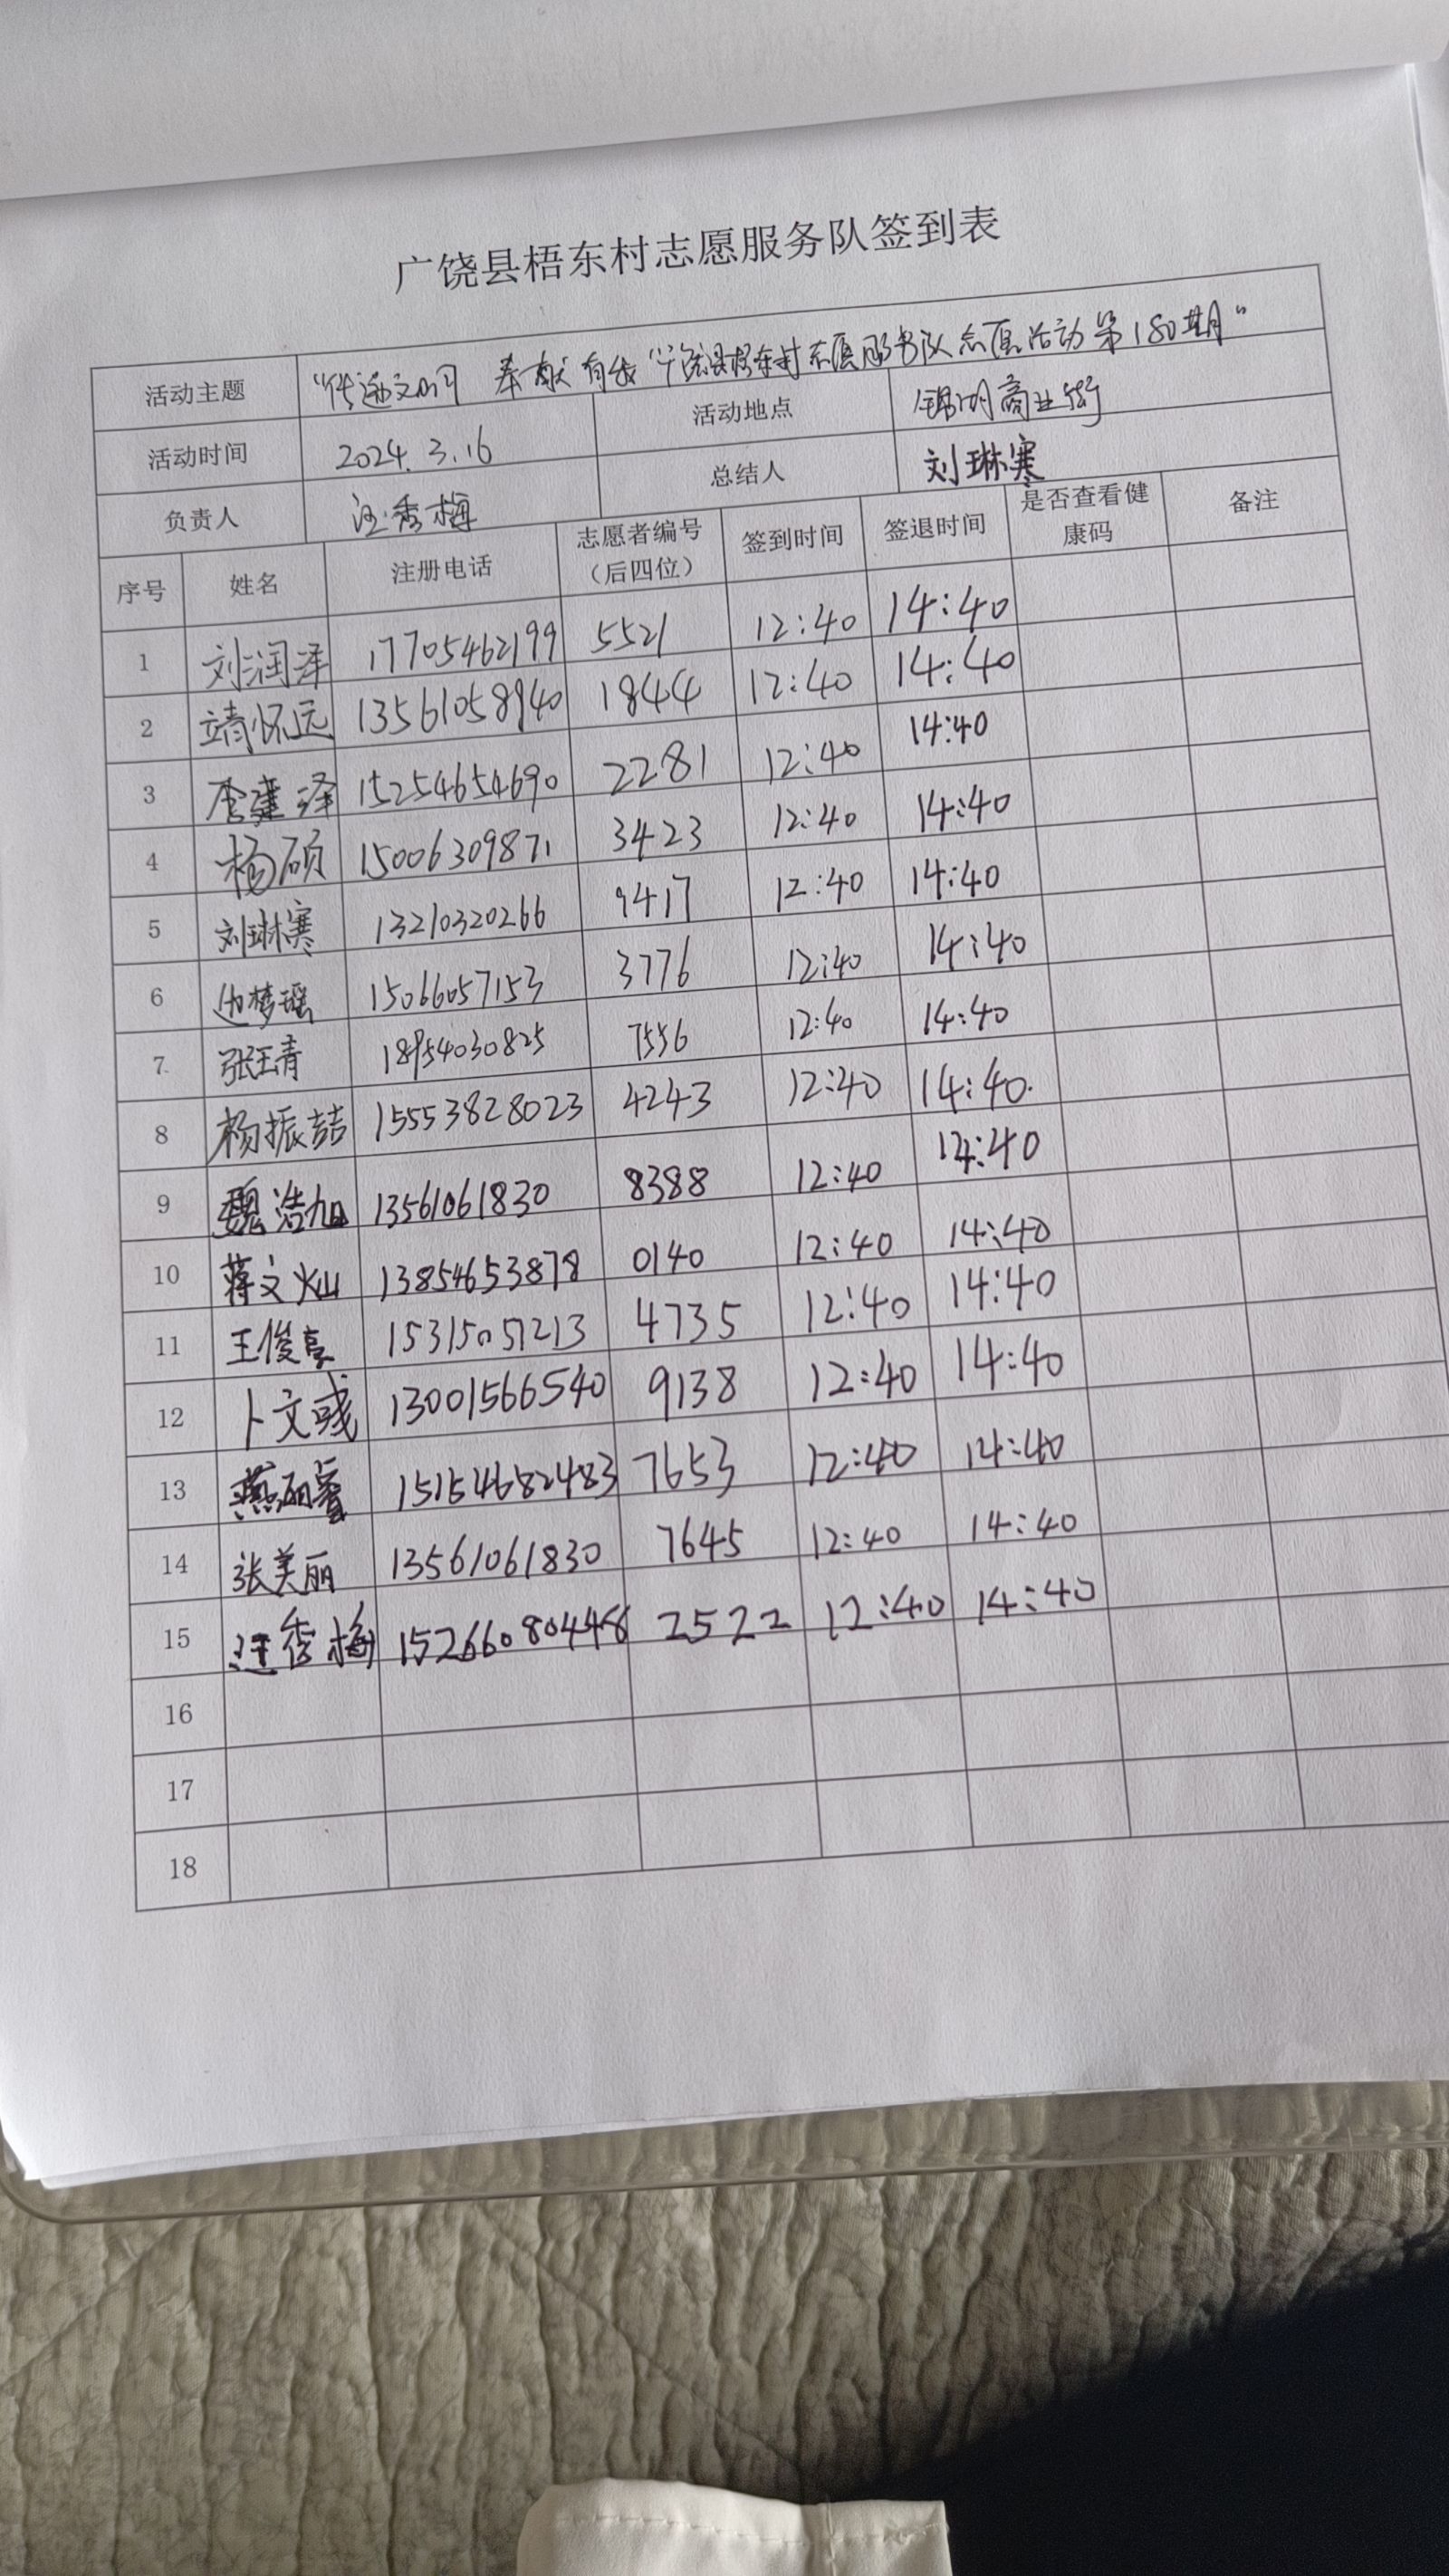 广饶县梧东村志愿服务队签到表
活动主题 "传递文明 奉献有我"广饶县梧东村志愿服务队志愿活动第180期"
活动时间 2024.3.16 活动地点 锦湖商业街
负责人 汪秀梅 总结人 刘琳寒
序号 姓名 注册电话 志愿者编号（后四位） 签到时间 签退时间 是否查看健康码 备注
1 刘润泽 17705462199 5521 12:40 14:40
2 靖怀远 13561058940 1844 12:40 14:40
3 李建泽 15254654690 2281 12:40 14:40
4 杨硕 15006309871 3423 12:40 14:40
5 刘琳寒 13210320266 9417 12:40 14:40
6 边梦瑶 15066057153 3776 12:40 14:40
7 张玉青 18954030825 7556 12:40 14:40
8 杨振喆 15553828023 4243 12:40 14:40
9 魏浩旭 13561061830 8388 12:40 14:40
10 蒋文灿 13854653878 0140 12:40 14:40
11 王俊享 15315051213 4735 12:40 14:40
12 卜文彧 13001566540 9138 12:40 14:40
13 燕丽睿 15154682483 7653 12:40 14:40
14 张美丽 13561061830 7645 12:40 14:40
15 汪秀梅 15266080448 2522 12:40 14:40
16
17
18